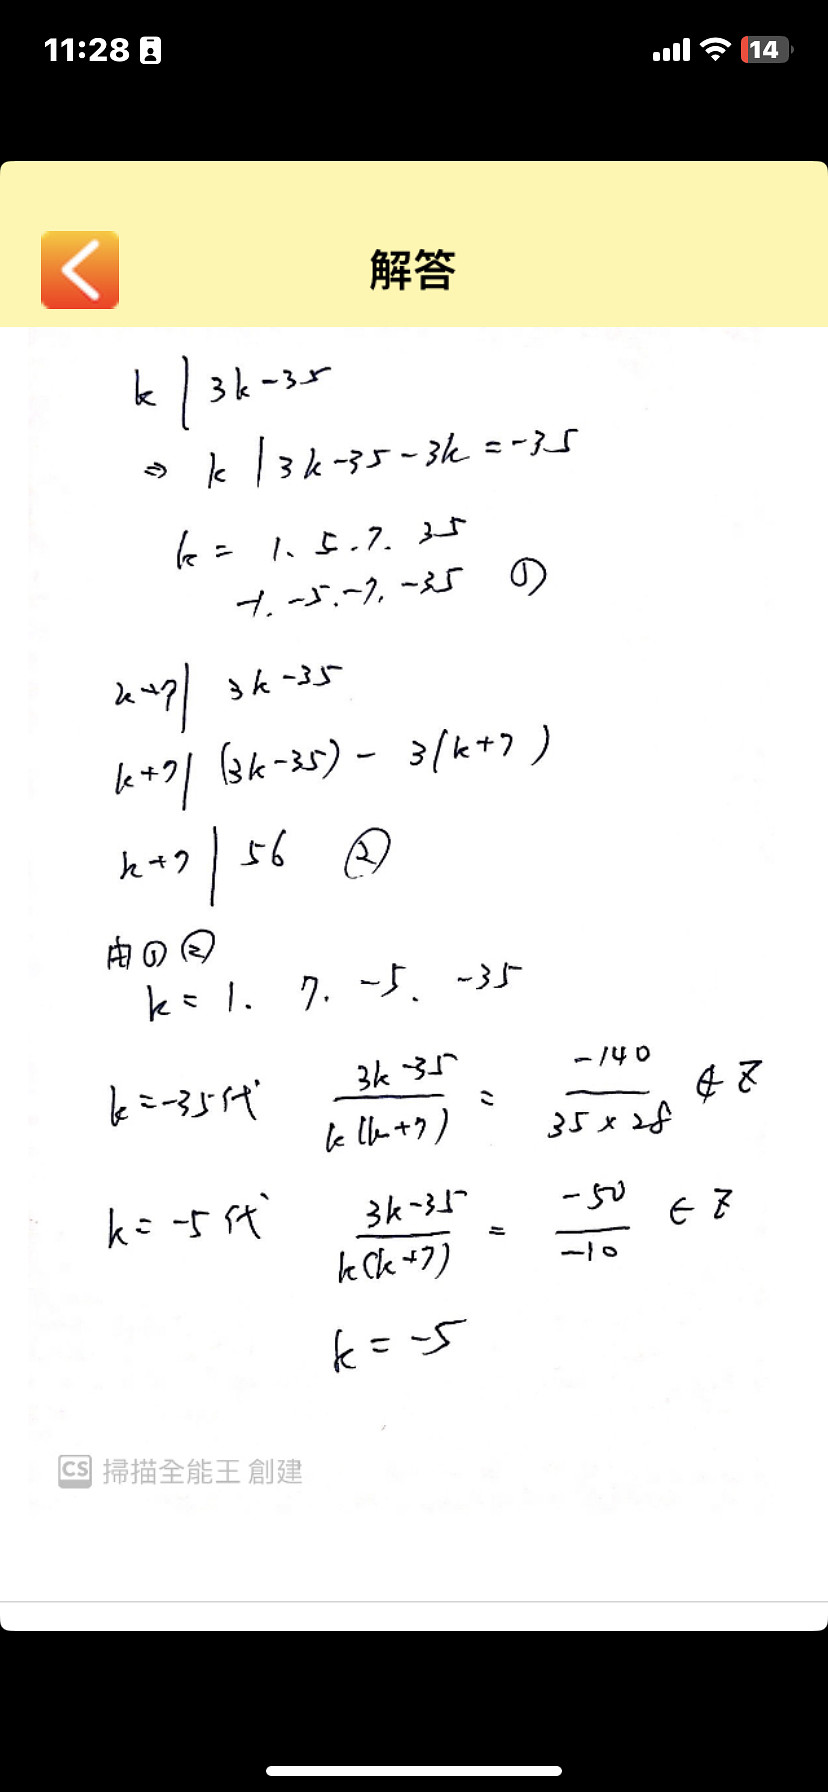 11:28
14
解答
k | 3k-35
⇒ k | 3k-35-3k = -35
k = 1、5、7、35
-1、-5、-7、-35 ①
k+7 | 3k-35
k+7 | (3k-35) - 3(k+7)
k+7 | 56 ②
由①②
k = 1、7、-5、-35
k=-35代 (3k-35)/(k(k+7)) = (-140)/(35×28) ∉ Z
k=-5代 (3k-35)/(k(k+7)) = (-50)/(-10) ∈ Z
k = -5
CS 掃描全能王 創建